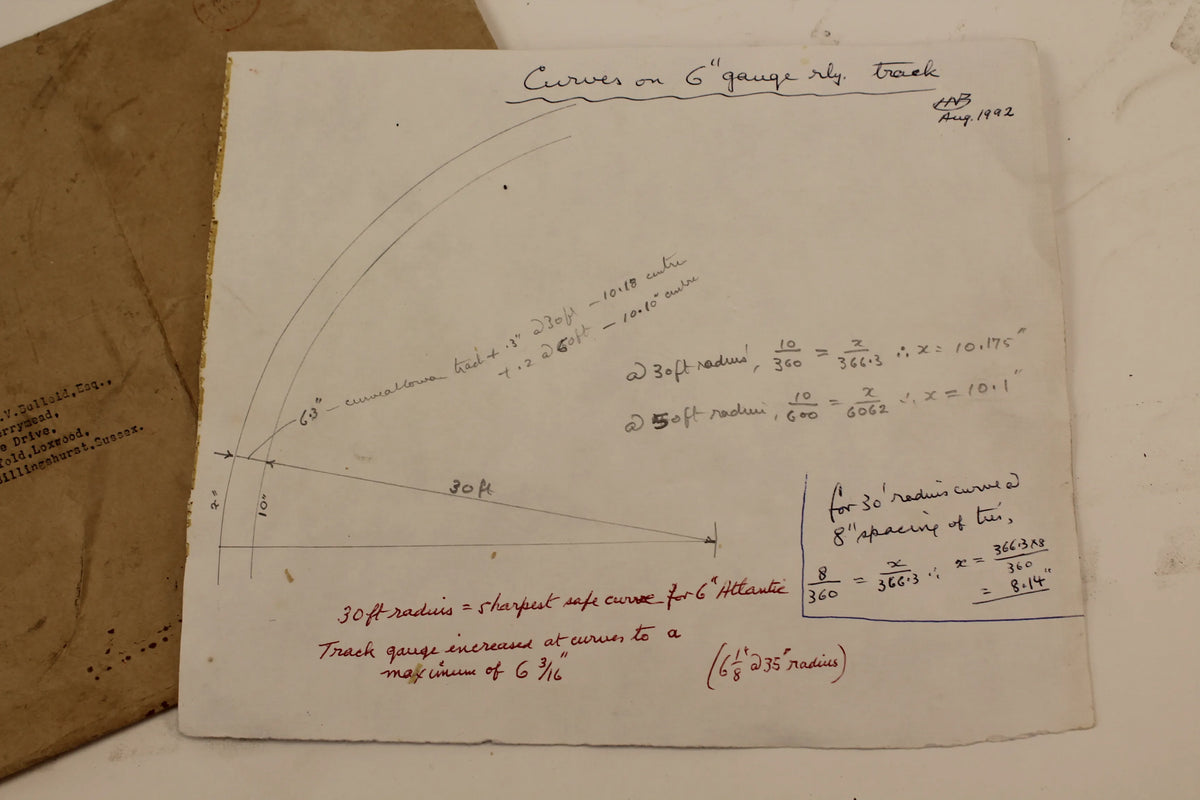 Curves on 6" gauge rly. track
HAB
Aug. 1992
6.3" – curve allowa track + .3" @ 30ft – 10.18 centre
+ .2 @ 60ft – 10.10" centre
@ 30ft radius, 10/360 = x/366.3 ∴ x = 10.175"
@ 50ft radius, 10/600 = x/6062 ∴ x = 10.1"
30 ft
10"
for 30' radius curve @
8" spacing of ties,
8/360 = x/366.3 ∴ x = 366.3x8/360
= 8.14"
30ft radius = sharpest safe curve for 6" Atlantic
Track gauge increased at curves to a
maximum of 6 3/16"
(6 1/8" @ 35" radius)
.V.Bulleid,Esq.,
errymead,
e Drive,
fold,Loxwood,
Billingshurst.Sussex.